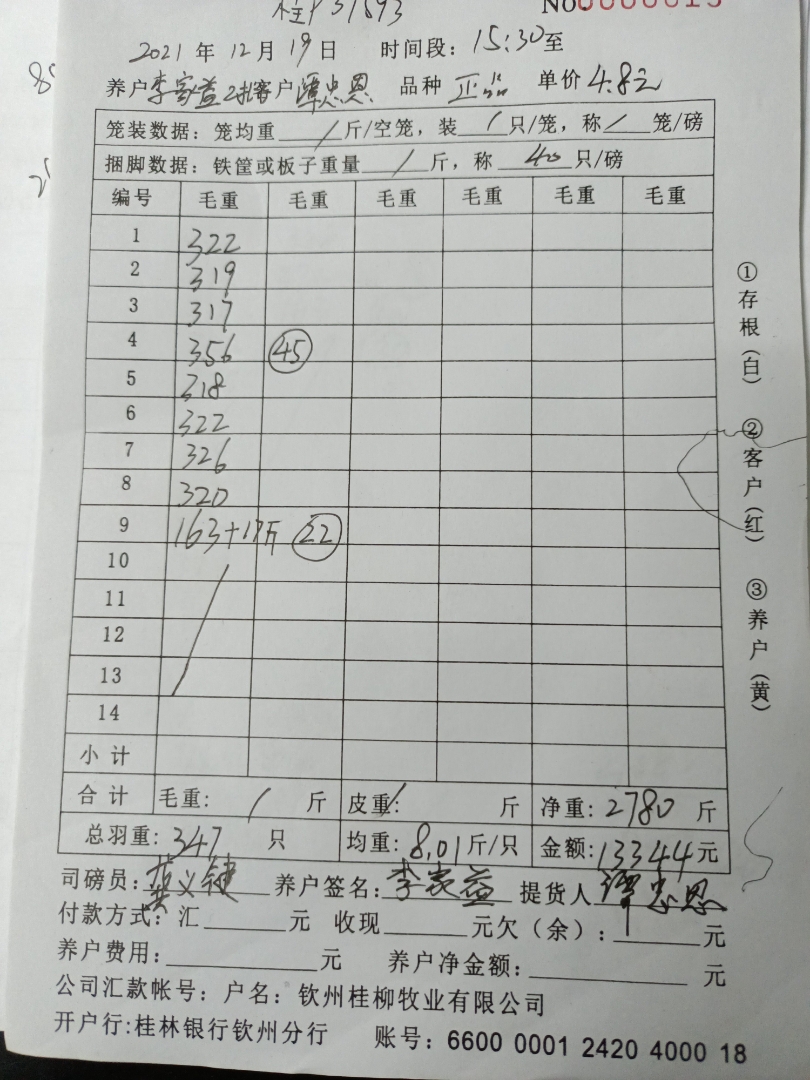 桂P31593
No0000015
2021 年 12 月 19 日 时间段：15:30至
养户 李家益 2批 客户 谭忠恩 品种 正品 单价 4.8元
笼装数据：笼均重 / 斤/空笼，装 / 只/笼，称 / 笼/磅
捆脚数据：铁筐或板子重量 / 斤，称 40 只/磅
编号 毛重 毛重 毛重 毛重 毛重 毛重
1 322
2 319
3 317
4 356 45
5 318
6 322
7 326
8 320
9 163+17斤 22
10
11
12
13
14
小计
合计 毛重：/ 斤 皮重：/ 斤 净重：2780 斤
总羽重：347 只 均重：8.01斤/只 金额：13344元
司磅员：义键 养户签名：李家益 提货人 谭忠恩
付款方式：汇 元 收现 元欠（余）： 元
养户费用： 元 养户净金额： 元
公司汇款帐号：户名：钦州桂柳牧业有限公司
开户行：桂林银行钦州分行 账号：6600 0001 2420 4000 18
①存根（白） ②客户（红） ③养户（黄）